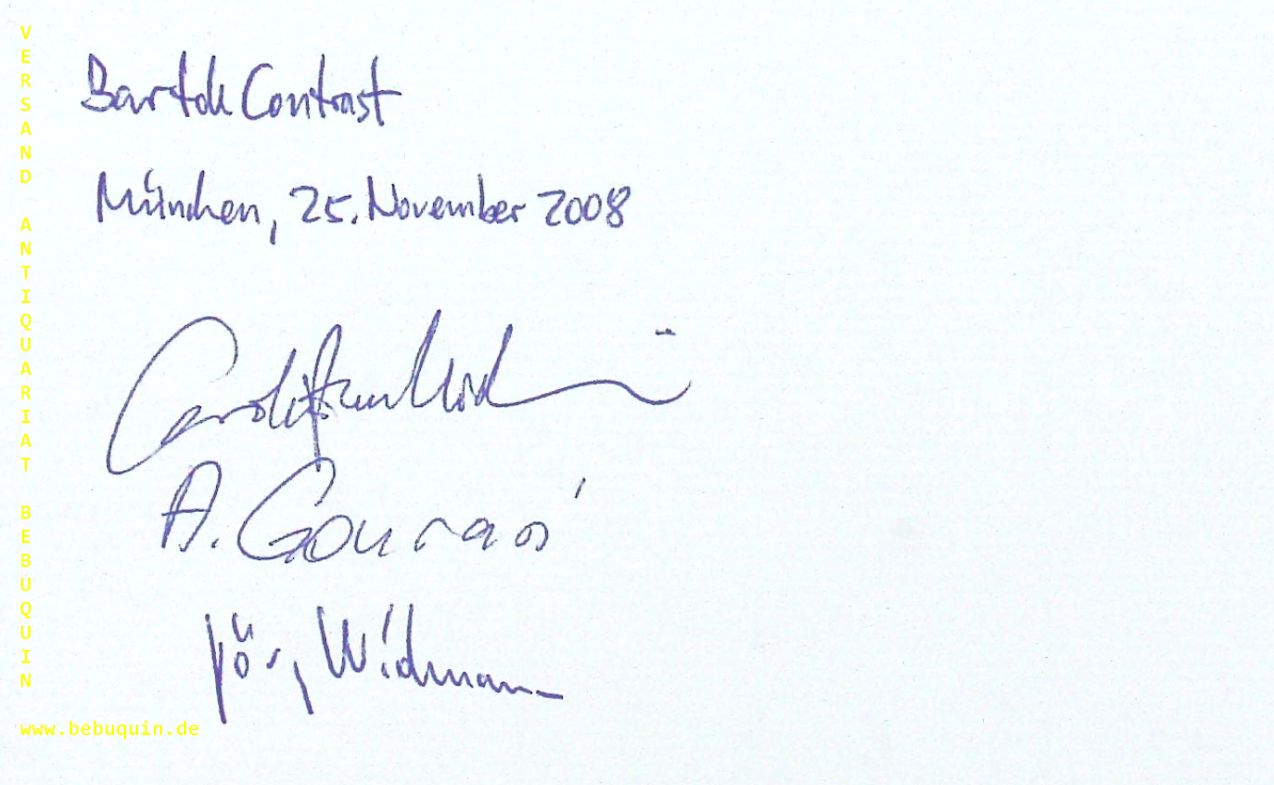 VERSAND ANTIQUARIAT BEBUQUIN
Bartók Contrast
München, 25. November 2008
Carolin Widmann
A. Gourari
Jörg Widmann
www.bebuquin.de